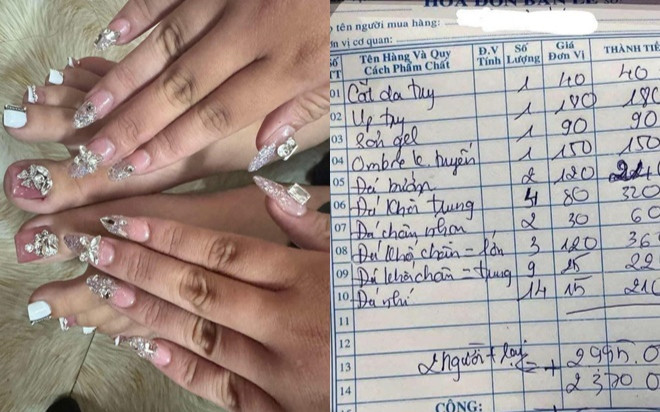 HÓA ĐƠN BÁN LẺ
tên người mua hàng:
n vị cơ quan:
Số TT Tên Hàng Và Quy Cách Phẩm Chất Đ.V Tính Số Lượng Giá Đơn Vị THÀNH TIỀ
01 Cắt da tay 1 40 40
02 Úp tay 1 180 180
03 Sơn gel 1 90 90
04 Ombre le tuyến 1 150 150
05 Đá bướm 2 120 240
06 Đá khối trung 4 80 320
07 Đá chân nhọn 2 30 60
08 Đá khối chân - lớn 3 120 36
09 Đá khối chân - trung 9 25 22
10 Đá nhí 14 15 210
11
12
13 2 người + lại 2995.0
14 2370 0
CỘNG: